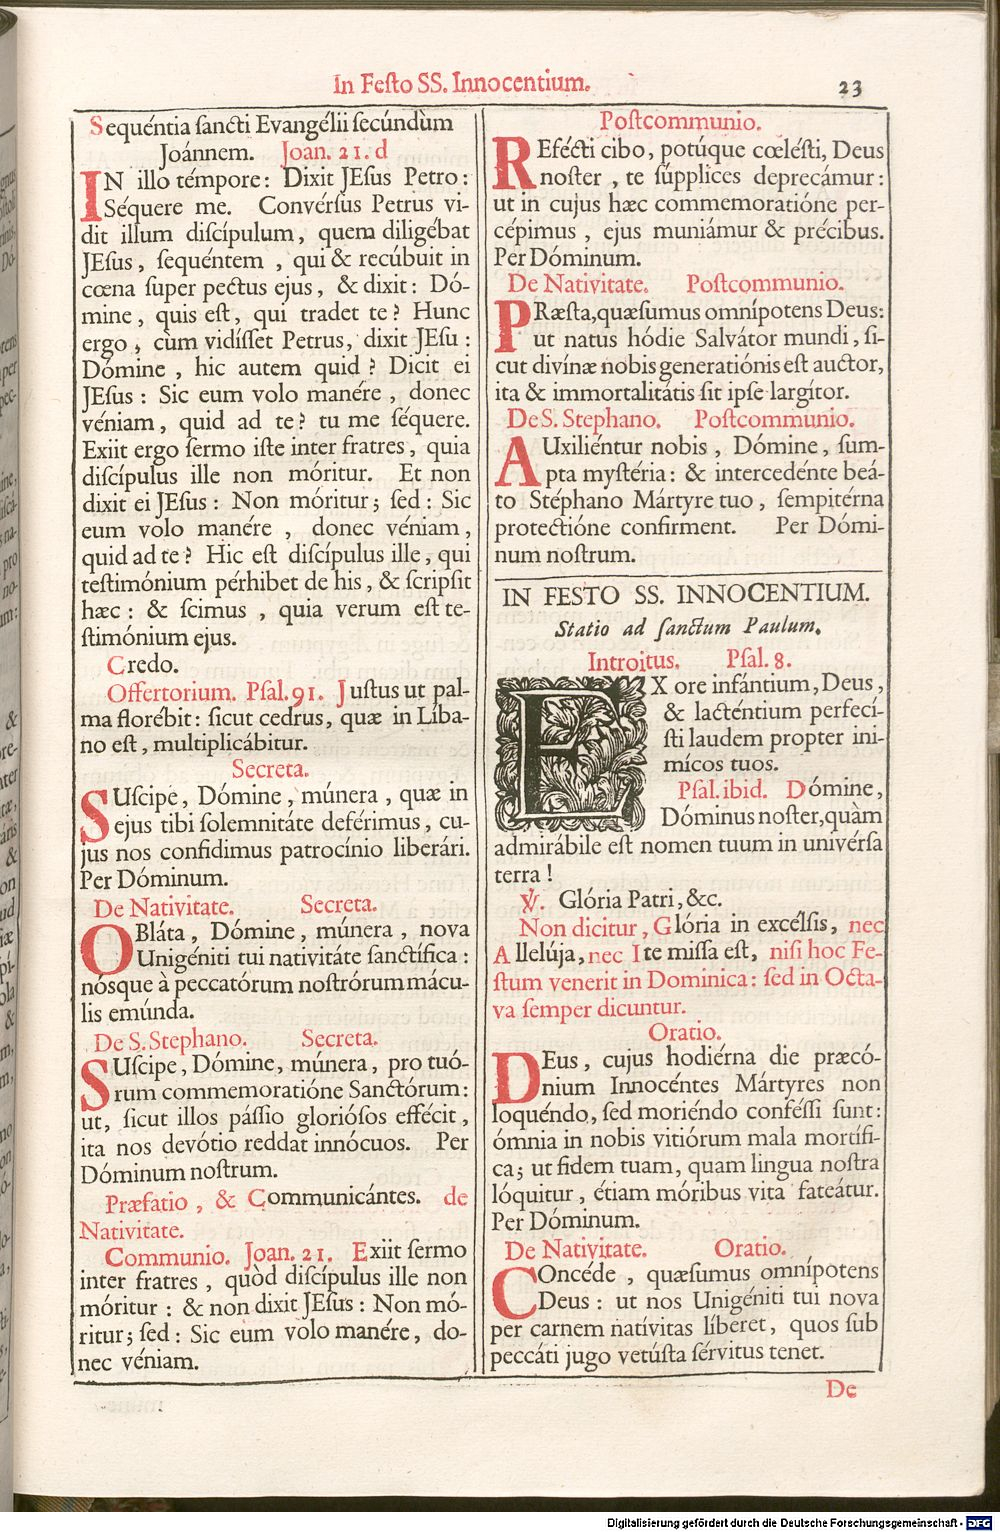 In Feſto SS. Innocentium.
23
Sequéntia ſancti Evangélii ſecúndùm
Joánnem. Joan. 21. d
IN illo témpore: Dixit JEſus Petro:
Séquere me. Convérſus Petrus vi-
dit illum diſcípulum, quem diligébat
JEſus, ſequéntem, qui & recúbuit in
cœna ſuper pectus ejus, & dixit: Dó-
mine, quis eſt, qui tradet te? Hunc
ergo, cùm vidíſſet Petrus, dixit JEſu:
Dómine, hic autem quid? Dicit ei
JEſus: Sic eum volo manére, donec
véniam, quid ad te? tu me ſéquere.
Exiit ergo ſermo iſte inter fratres, quia
diſcípulus ille non móritur. Et non
dixit ei JEſus: Non móritur; ſed: Sic
eum volo manére, donec véniam,
quid ad te? Hic eſt diſcípulus ille, qui
teſtimónium pérhibet de his, & ſcripſit
hæc: & ſcimus, quia verum eſt te-
ſtimónium ejus.
Credo.
Offertorium. Pſal. 91. Juſtus ut pal-
ma florébit: ſicut cedrus, quæ in Líba-
no eſt, multiplicábitur.
Secreta.
SUſcipe, Dómine, múnera, quæ in
ejus tibi ſolemnitáte deférimus, cu-
jus nos confidimus patrocínio liberári.
Per Dóminum.
De Nativitate. Secreta.
OBláta, Dómine, múnera, nova
Unigéniti tui nativitáte ſanctífica:
nósque à peccatórum noſtrórum mácu-
lis emúnda.
De S. Stephano. Secreta.
SUſcipe, Dómine, múnera, pro tuó-
rum commemoratióne Sanctórum:
ut, ſicut illos páſſio glorióſos effécit,
ita nos devótio reddat innócuos. Per
Dóminum noſtrum.
Præfatio, & Communicántes. de
Nativitate.
Communio. Joan. 21. Exiit ſermo
inter fratres, quòd diſcípulus ille non
móritur: & non dixit JEſus: Non mó-
ritur; ſed: Sic eum volo manére, do-
nec véniam.
Poſtcommunio.
REfécti cibo, potúque cœléſti, Deus
noſter, te ſúpplices deprecámur:
ut in cujus hæc commemoratióne per-
cépimus, ejus muniámur & précibus.
Per Dóminum.
De Nativitate. Poſtcommunio.
PRæſta, quæſumus omnípotens Deus:
ut natus hódie Salvátor mundi, ſi-
cut divínæ nobis generatiónis eſt auctor,
ita & immortalitátis ſit ipſe largítor.
De S. Stephano. Poſtcommunio.
AUxiliéntur nobis, Dómine, ſum-
pta myſtéria: & intercedénte beá-
to Stéphano Mártyre tuo, ſempitérna
protectióne confirment. Per Dómi-
num noſtrum.
IN FESTO SS. INNOCENTIUM.
Statio ad ſanctum Paulum.
Introitus. Pſal. 8.
EX ore infántium, Deus,
& lacténtium perfecí-
ſti laudem propter ini-
mícos tuos.
Pſal. ibid. Dómine,
Dóminus noſter, quàm
admirábile eſt nomen tuum in univérſa
terra!
℣. Glória Patri, &c.
Non dicitur, Glória in excélſis, nec
Allelúja, nec Ite miſſa eſt, niſi hoc Fe-
ſtum venerit in Dominica: ſed in Octa-
va ſemper dicuntur.
Oratio.
DEus, cujus hodiérna die præcó-
nium Innocéntes Mártyres non
loquéndo, ſed moriéndo conféſſi ſunt:
ómnia in nobis vitiórum mala mortífi-
ca; ut fidem tuam, quam lingua noſtra
lóquitur, étiam móribus vita fateátur.
Per Dóminum.
De Nativitate. Oratio.
COncéde, quæſumus omnípotens
Deus: ut nos Unigéniti tui nova
per carnem natívitas líberet, quos ſub
peccáti jugo vetúſta ſérvitus tenet.
De
Digitalisierung gefördert durch die Deutsche Forschungsgemeinschaft - DFG